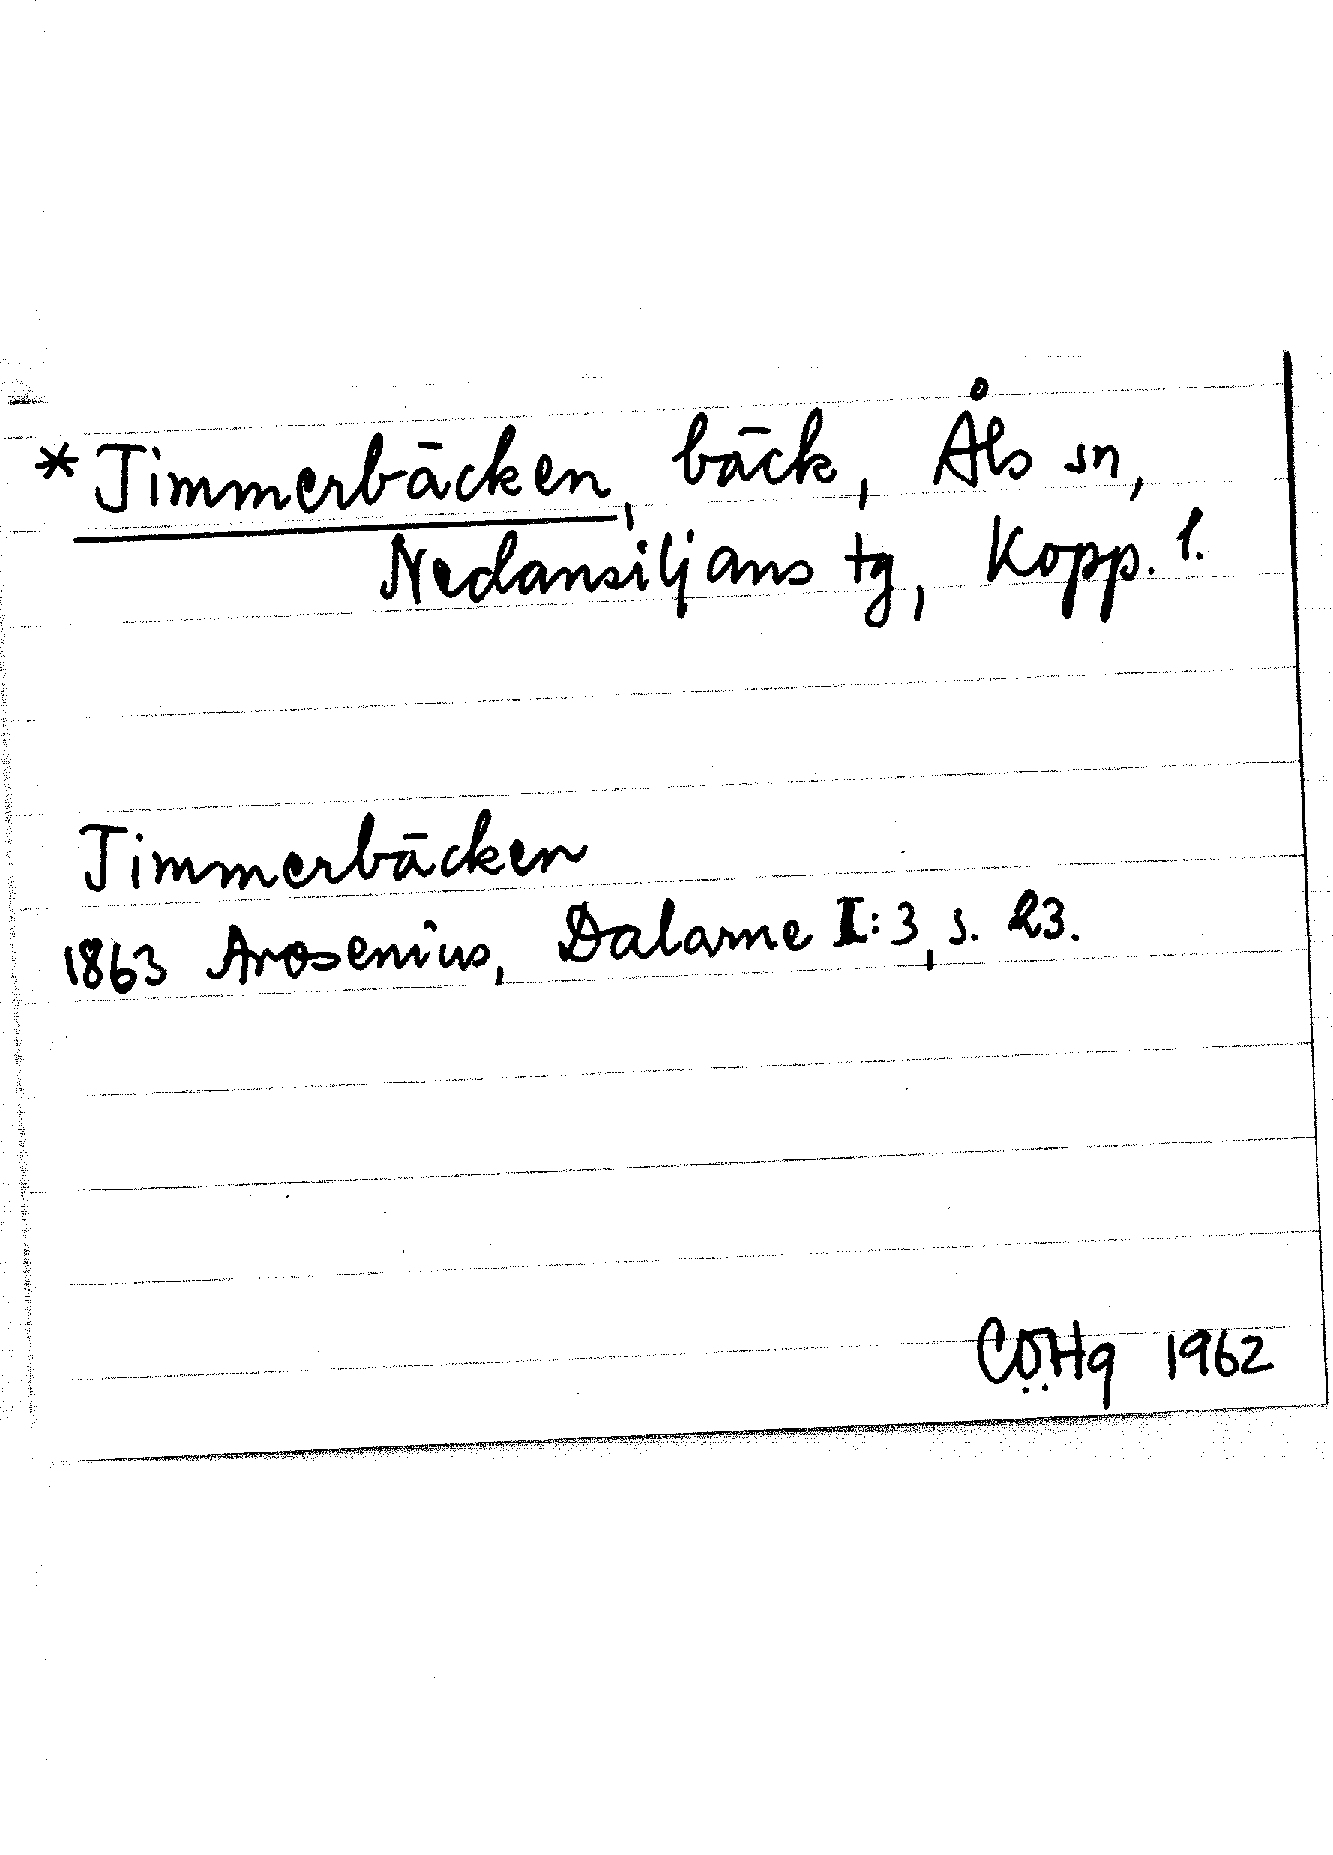 *Timmerbäcken, bäck, Åls sn,
Nedansiljans tg, Kopp. l.
Timmerbäcken
1863 Arosenius, Dalarne I:3, s. 23.
CÖHg 1962